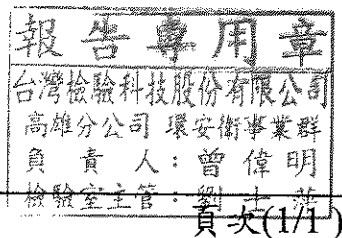 報告專用章
台灣檢驗科技股份有限公司
高雄分公司 環安衛事業群
負責人：曾偉明
檢驗室主管：劉士
頁次(1/1)